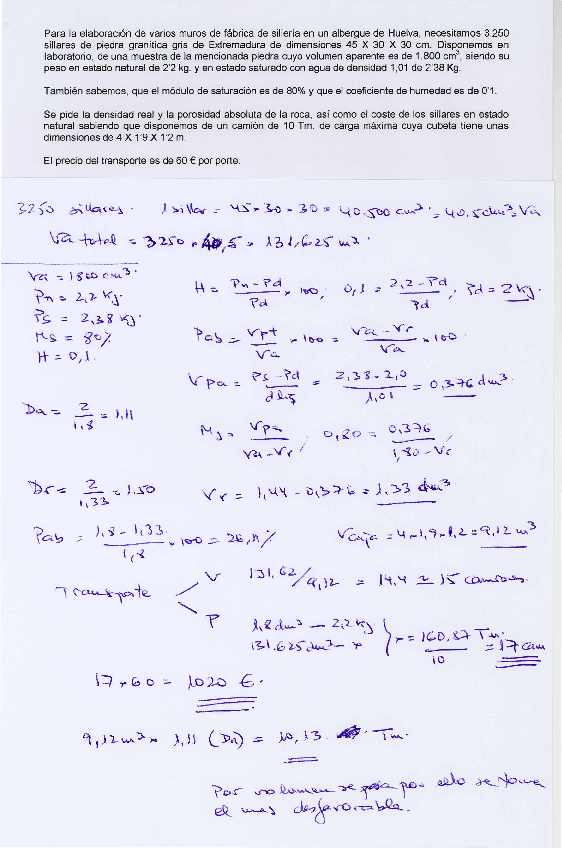 Para la elaboración de varios muros de fábrica de sillería en un albergue de Huelva, necesitamos 3.250
sillares de piedra granítica gris de Extremadura de dimensiones 45 X 30 X 30 cm. Disponemos en
laboratorio, de una muestra de la mencionada piedra cuyo volumen aparente es de 1.800 cm³, siendo su
peso en estado natural de 2'2 kg. y en estado saturado con agua de densidad 1,01 de 2'38 Kg.
También sabemos, que el módulo de saturación es de 80% y que el coeficiente de humedad es de 0'1.
Se pide la densidad real y la porosidad absoluta de la roca, así como el coste de los sillares en estado
natural sabiendo que disponemos de un camión de 10 Tm. de carga máxima cuya cubeta tiene unas
dimensiones de 4 X 1'9 X 1'2 m.
El precio del transporte es de 60 € por porte.
3250 sillares. 1 sillar = 45 × 30 × 30 = 40.500 cm³ = 40.5 dm³ = Va
Va total = 3250 × 40,5 = 131,625 m³.
Va = 1800 cm³.
Pn = 2,2 Kg.
Ps = 2,38 Kg.
Ms = 80%
H = 0,1.
H = Pn - Pd / Pd × 100; 0,1 = 2,2 - Pd / Pd; Pd = 2 Kg.
Pab = Vpt / Va × 100 = Va - Vr / Va × 100
Vpa = Ps - Pd / dliq = 2,38 - 2,0 / 1,01 = 0,376 dm³.
Da = 2 / 1,8 = 1,11
Ms = Vpa / Va - Vr; 0,80 = 0,376 / 1,80 - Vr
Dr = 2 / 1,33 = 1.50
Vr = 1,44 - 0,376 = 1,33 dm³
Pab = 1,8 - 1,33 / 1,8 × 100 = 26,11%
Vcaja = 4 × 1,9 × 1,2 = 9,12 m³
Transporte
V 131,62 / 9,12 = 14,4 ≃ 15 camiones.
P 1,8 dm³ — 2,2 Kg
131.625 dm³ — x
x = 160,87 Tm. / 10 = 17 cam
17 × 60 = 1020 €.
9,12 m³ × 1,11 (Dn) = 10,13 Tm.
Por volumen se pasa por ello se toma
el mas desfavorable.